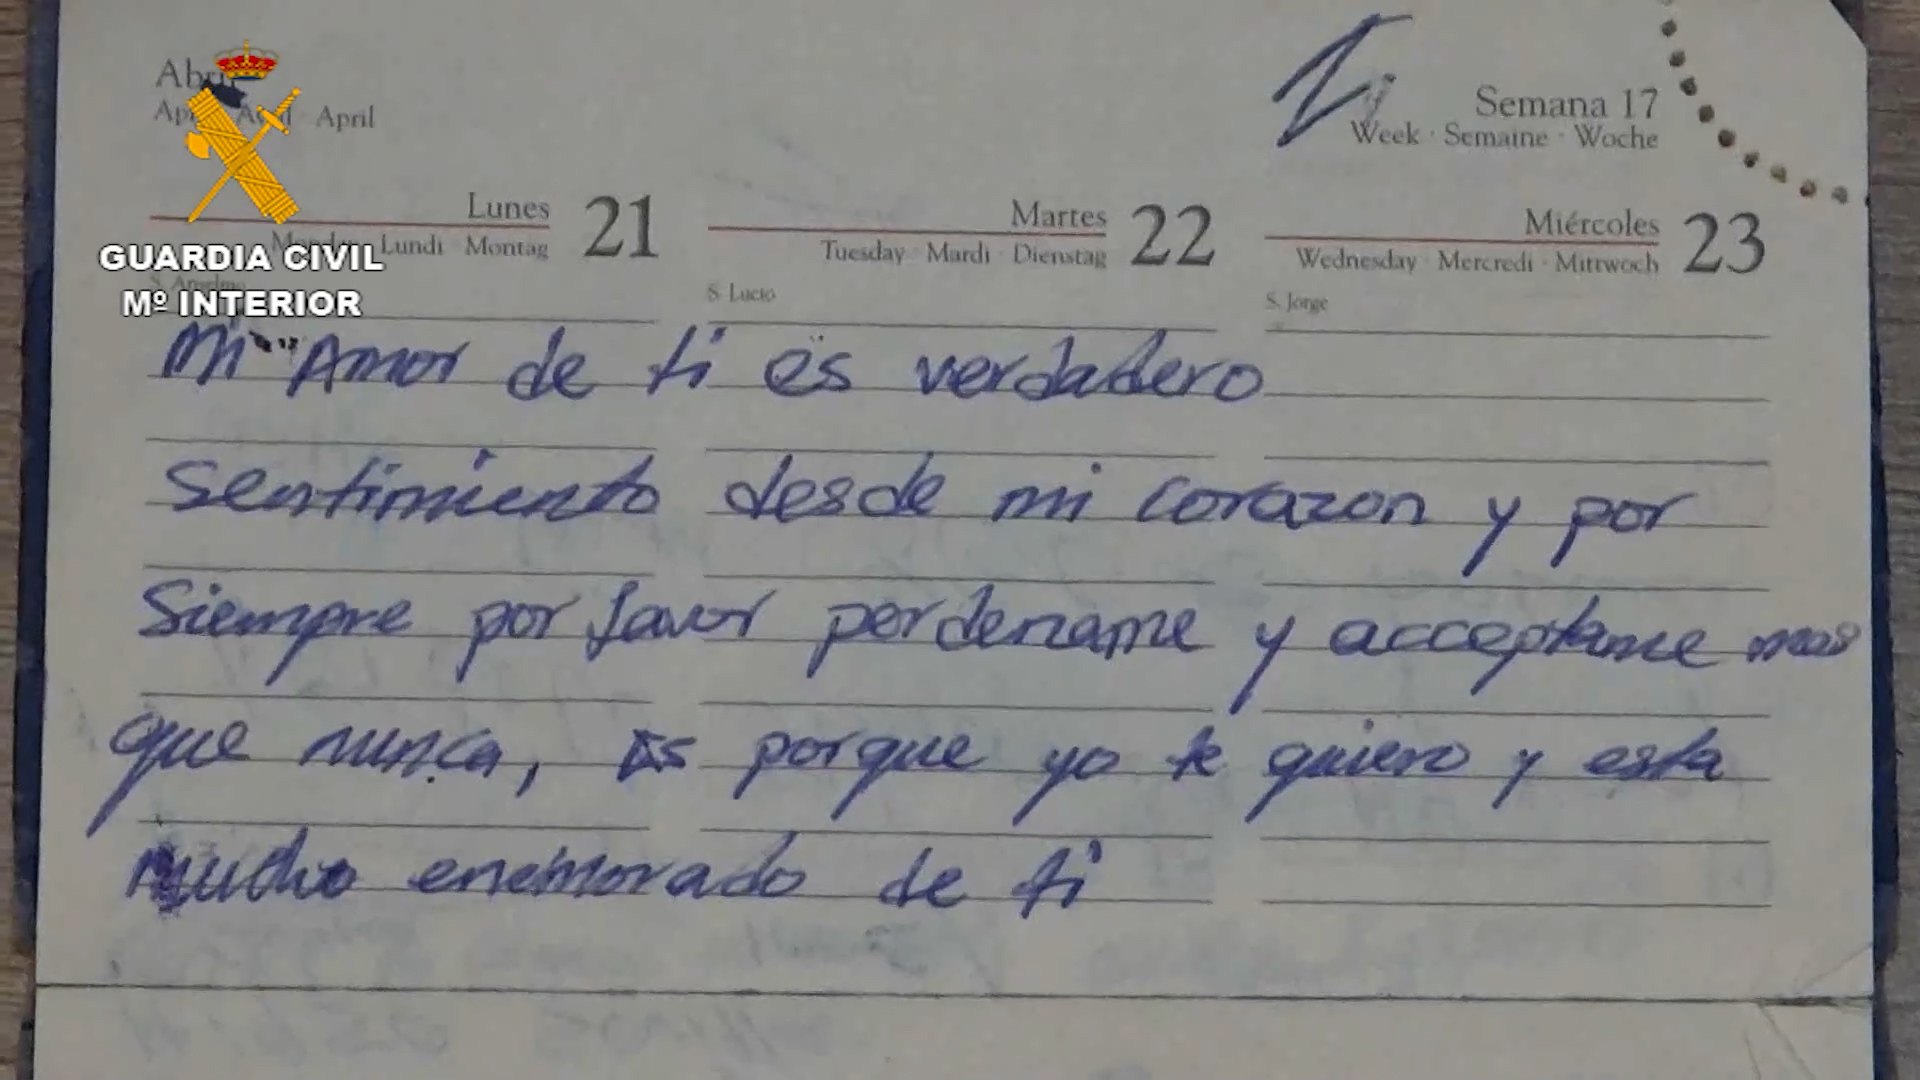 Abril
April · Avril · April
Semana 17
Week · Semaine · Woche
Lunes 21
Monday · Lundi · Montag
S. Anselmo
Martes 22
Tuesday · Mardi · Dienstag
S. Lucio
Miércoles 23
Wednesday · Mercredi · Mittwoch
S. Jorge
GUARDIA CIVIL
Mº INTERIOR
Mi Amor de ti es verdadero
sentimiento desde mi corazon y por
Siempre por favor perdename y acceptame mas
que nunca, Es porque yo te quiero y esta
mucho enemorado de ti